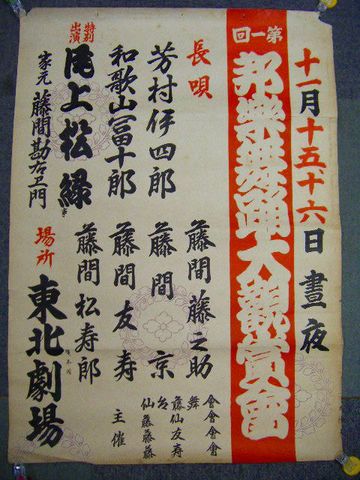 十一月十五十六日 晝夜
第一回
邦樂舞踊大觀賞會
長唄
芳村伊四郎
和歌山富十郎
特別出演
尾上松緑
家元 藤間勘右衛門
藤間藤之助
藤間 京
藤間友寿
藤間松寿郎
主催
場所 東北劇場